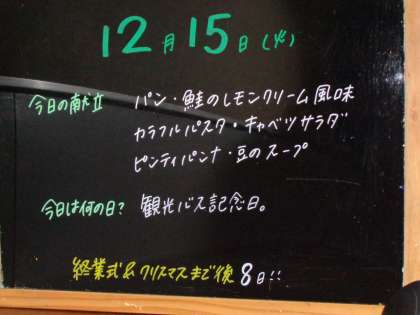 12月15日(火)
今日の献立 パン・鮭のレモンクリーム風味
カラフルパスタ・キャベツサラダ
ピンティパンナ・豆のスープ
今日は何の日? 観光バス記念日。
終業式&クリスマスまで後8日!!